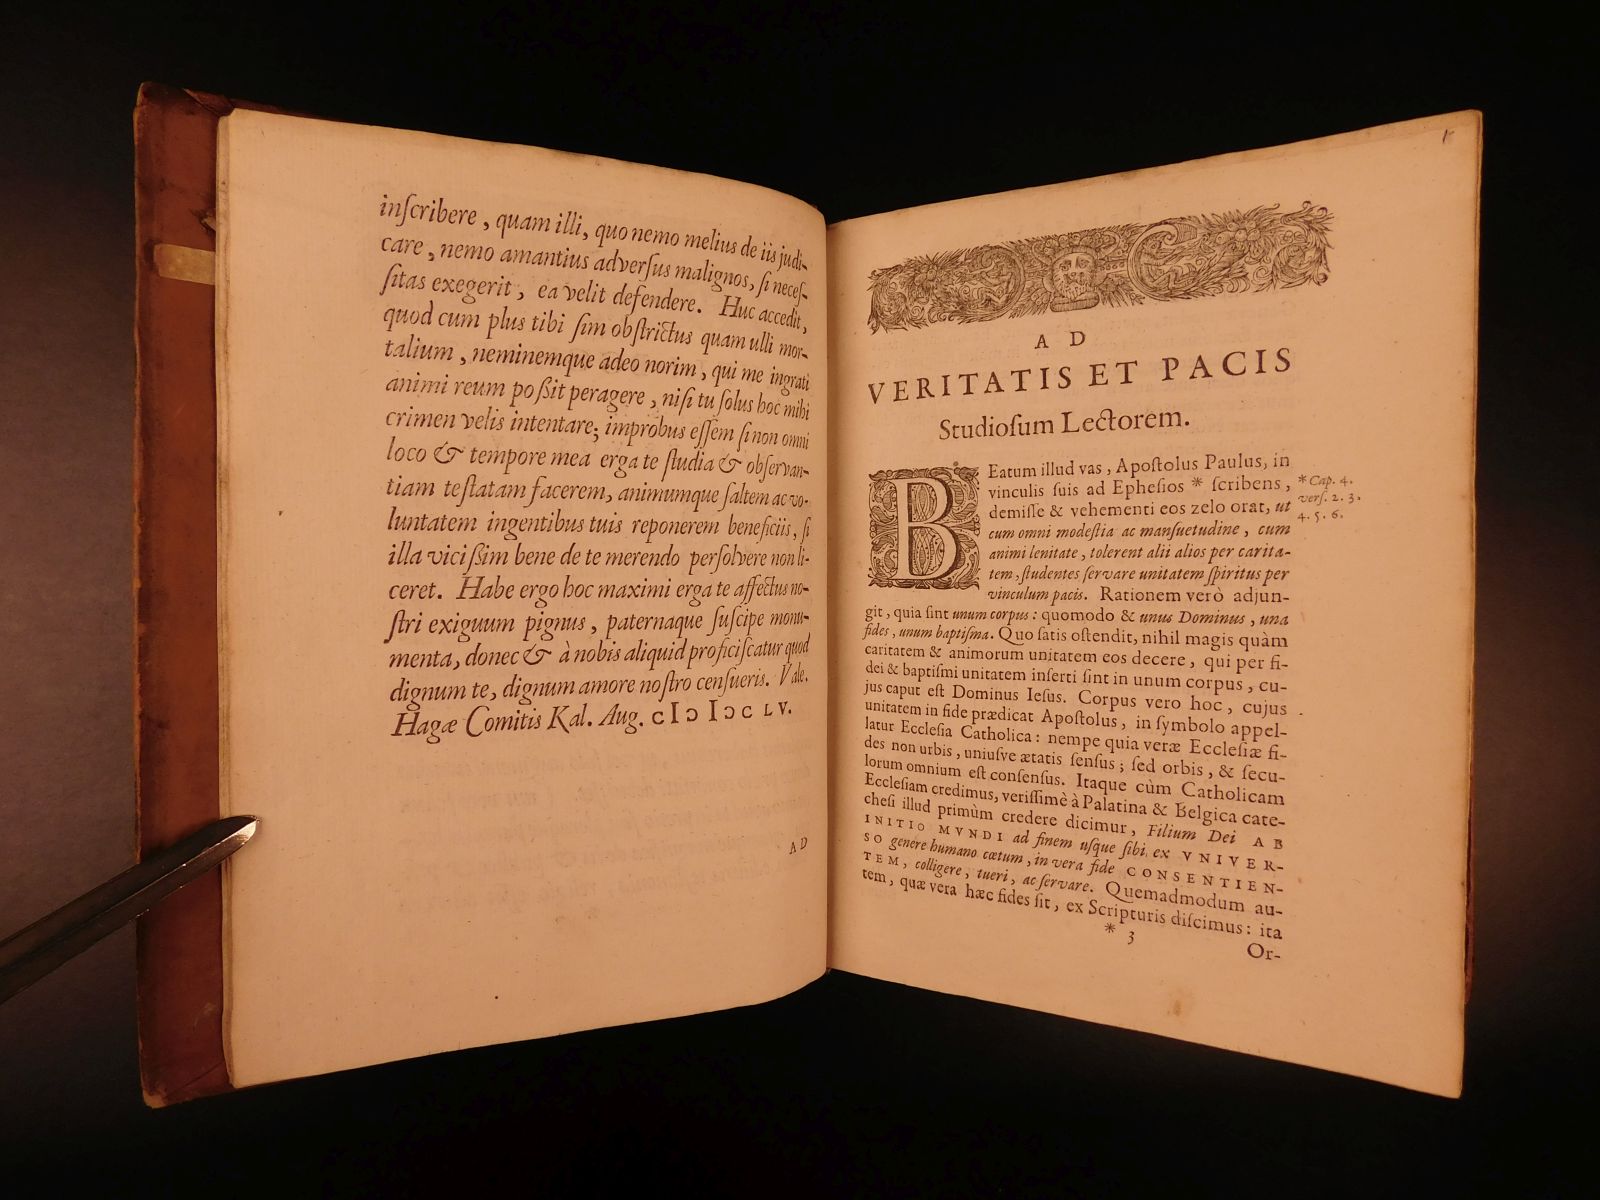 inſcribere, quam illi, quo nemo melius de iis judi-
care, nemo amantius adverſus malignos, ſi neceſ-
ſitas exegerit, ea velit defendere. Huc accedit,
quod cum plus tibi ſim obſtrictus quam ulli mor-
talium, neminemque adeo norim, qui me ingrati
animi reum poßit peragere, niſi tu ſolus hoc mihi
crimen velis intentare; improbus eſſem ſi non omni
loco & tempore mea erga te ſtudia & obſervan-
tiam teſtatam facerem, animumque ſaltem ac vo-
luntatem ingentibus tuis reponerem beneficiis, ſi
illa vicißim bene de te merendo perſolvere non li-
ceret. Habe ergo hoc maximi erga te affectus no-
ſtri exiguum pignus, paternaque ſuſcipe monu-
menta, donec & à nobis aliquid proficiſcatur quod
dignum te, dignum amore noſtro cenſueris. Vale.
Hagæ Comitis Kal. Aug. cIↄ Iↄc LV.
AD
AD
VERITATIS ET PACIS
Studioſum Lectorem.
BEatum illud vas, Apoſtolus Paulus, in
vinculis ſuis ad Epheſios * ſcribens,
demiſſe & vehementi eos zelo orat, ut
cum omni modeſtia ac manſuetudine, cum
animi lenitate, tolerent alii alios per carita-
tem, ſtudentes ſervare unitatem ſpiritus per
vinculum pacis. Rationem verò adjun-
git, quia ſint unum corpus: quomodo & unus Dominus, una
fides, unum baptiſma. Quo ſatis oſtendit, nihil magis quàm
caritatem & animorum unitatem eos decere, qui per fi-
dei & baptiſmi unitatem inſerti ſint in unum corpus, cu-
jus caput eſt Dominus Ieſus. Corpus vero hoc, cujus
unitatem in fide prædicat Apoſtolus, in ſymbolo appel-
latur Eccleſia Catholica: nempe quia veræ Eccleſiæ fi-
des non urbis, uniuſve ætatis ſenſus; ſed orbis, & ſecu-
lorum omnium eſt conſenſus. Itaque cùm Catholicam
Eccleſiam credimus, veriſſimè à Palatina & Belgica cate-
cheſi illud primùm credere dicimur, Filium Dei AB
INITIO MVNDI ad finem uſque ſibi ex VNIVER-
SO genere humano cœtum, in vera fide CONSENTIEN-
TEM, colligere, tueri, ac ſervare. Quemadmodum au-
tem, quæ vera hæc fides ſit, ex Scripturis diſcimus: ita
* 3
Or-
* Cap. 4.
verſ. 2. 3.
4. 5. 6.